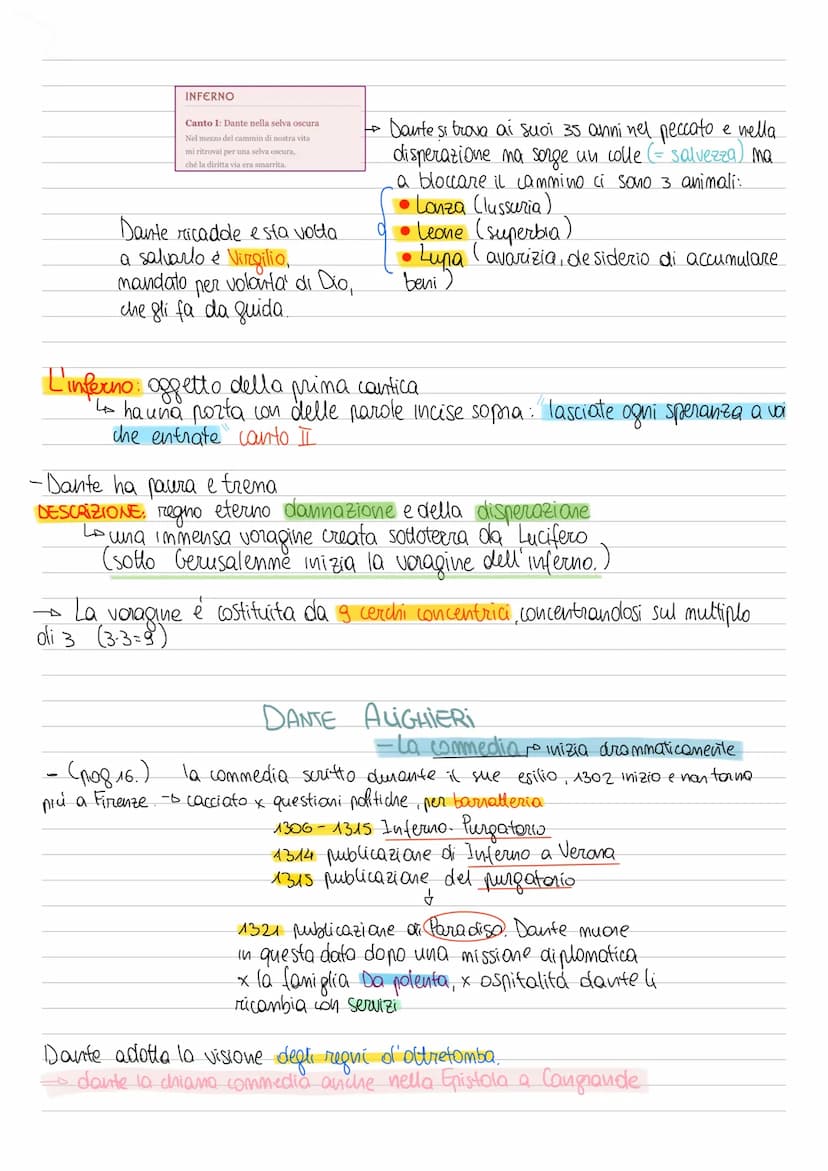 INFERNO
Canto I: Dante nella selva oscura
Nel mezzo del cammin di nostra vita
mi ritrovai per una selva oscura,
ché la diritta via era smarrita.
→ Dante si trova ai suoi 35 anni nel peccato e nella
disperazione ma sorge un colle (= salvezza) ma
a bloccare il cammino ci sono 3 animali:
• Lonza (lussuria)
• Leone (superbia)
• Lupa (avarizia, desiderio di accumulare
beni)
Dante ricadde e sta volta
a salvarlo è Virgilio,
mandato per volontà di Dio,
che gli fa da guida.
L'inferno: oggetto della prima cantica
↳ ha una porta con delle parole incise sopra: "lasciate ogni speranza a voi
che entrate" canto II
- Dante ha paura e trema
DESCRIZIONE: regno eterno dannazione e della disperazione
↳ una immensa voragine creata sottoterra da Lucifero
(sotto Gerusalemme inizia la voragine dell'inferno.)
→ La voragine é costituita da 9 cerchi concentrici, concentrandosi sul multiplo
di 3 (3·3=9)
DANTE ALIGHIERI
- La commedia → inizia drammaticamente
- (pag 16.) la commedia scritto durante il sue esilio, 1302 inizio e non torna
più a Firenze. → cacciato x questioni politiche, per barratteria
1306 - 1315 Inferno. Purgatorio
1314 publicazione di Inferno a Verona
1315 publicazione del purgatorio
↓
1321 publicazione di Paradiso. Dante muore
in questa data dopo una missione diplomatica
x la famiglia Da polenta, x ospitalità dante li
ricambia con servizi
Dante adotta la visione degli regni d'oltretomba.
→ dante la chiama commedia anche nella Epistola a Cangrande